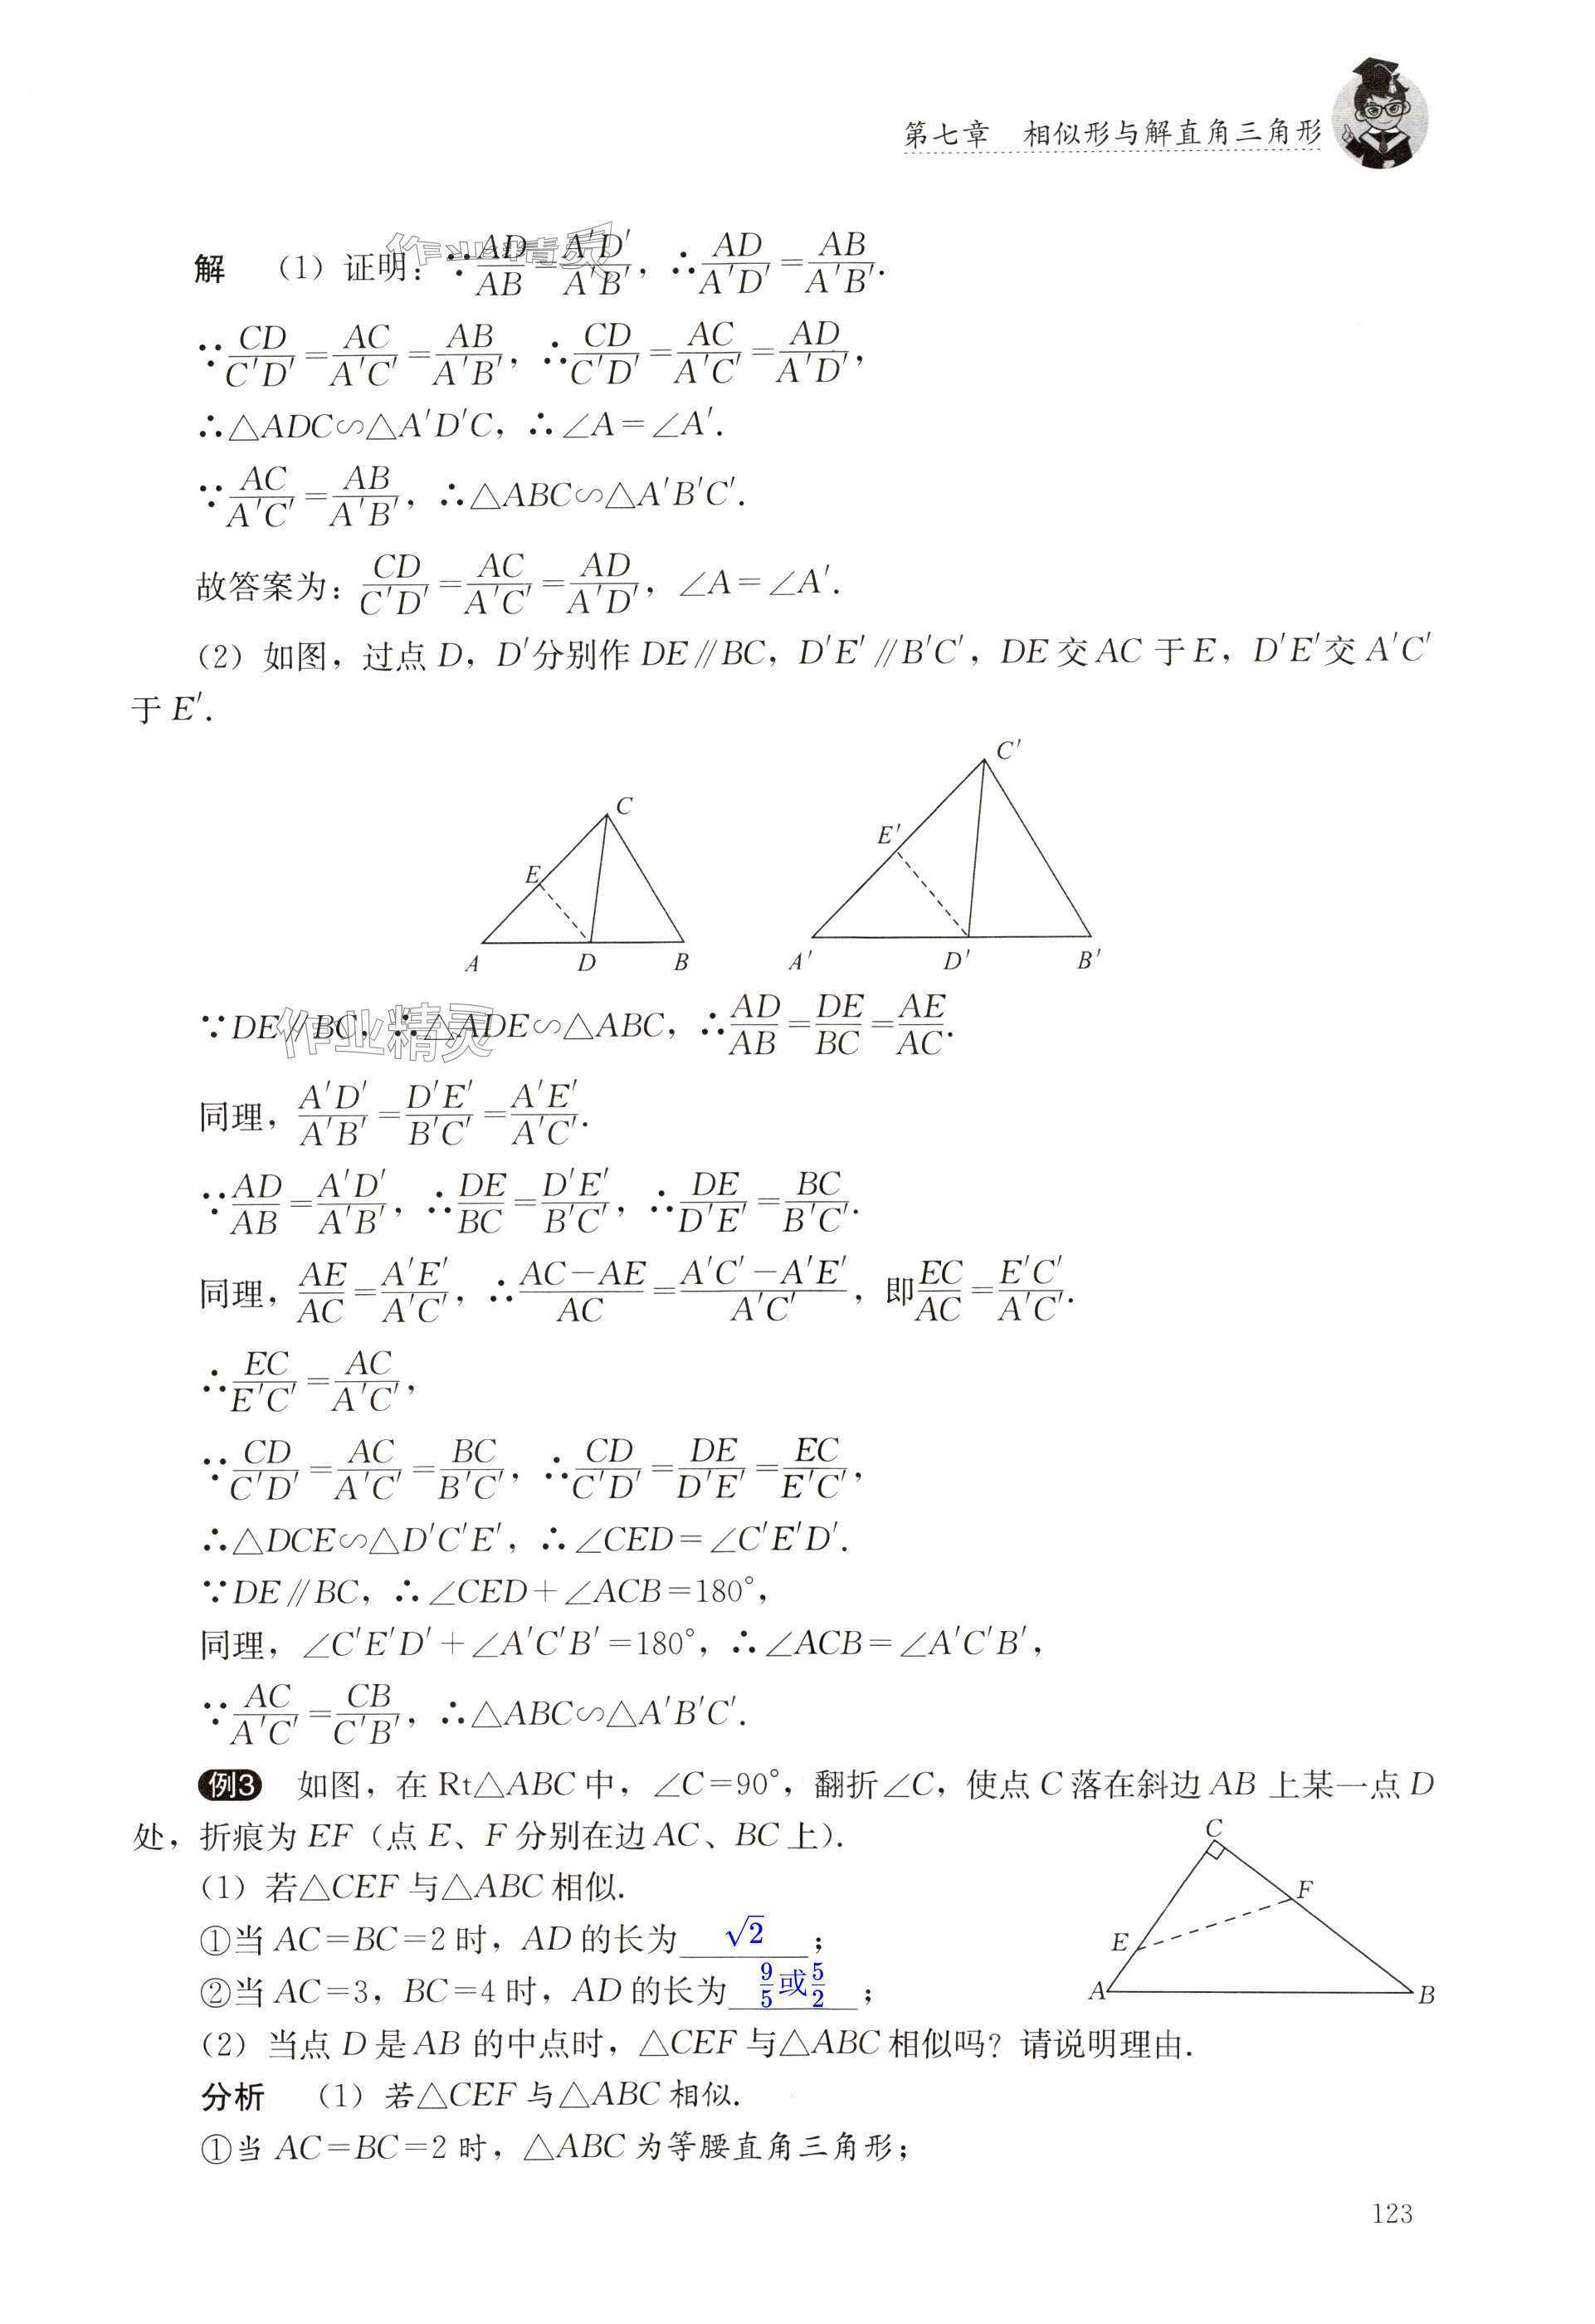 第七章 相似形与解直角三角形
解 (1) 证明:∵AD/AB=A′D′/A′B′, ∴AD/A′D′=AB/A′B′.
∵CD/C′D′=AC/A′C′=AB/A′B′, ∴CD/C′D′=AC/A′C′=AD/A′D′,
∴△ADC∽△A′D′C, ∴∠A=∠A′.
∵AC/A′C′=AB/A′B′, ∴△ABC∽△A′B′C′.
故答案为: CD/C′D′=AC/A′C′=AD/A′D′, ∠A=∠A′.
(2) 如图, 过点 D, D′分别作 DE∥BC, D′E′∥B′C′, DE交AC 于E, D′E′交 A′C′
于 E′.
C
E
A D B
C′
E′
A′ D′ B′
∵DE∥BC, ∴△ADE∽△ABC, ∴AD/AB=DE/BC=AE/AC.
同理, A′D′/A′B′=D′E′/B′C′=A′E′/A′C′.
∵AD/AB=A′D′/A′B′, ∴DE/BC=D′E′/B′C′, ∴DE/D′E′=BC/B′C′.
同理, AE/AC=A′E′/A′C′, ∴(AC−AE)/AC=(A′C′−A′E′)/A′C′, 即EC/AC=E′C′/A′C′.
∴EC/E′C′=AC/A′C′,
∵CD/C′D′=AC/A′C′=BC/B′C′, ∴CD/C′D′=DE/D′E′=EC/E′C′,
∴△DCE∽△D′C′E′, ∴∠CED=∠C′E′D′.
∵DE∥BC, ∴∠CED+∠ACB=180°,
同理, ∠C′E′D′+∠A′C′B′=180°, ∴∠ACB=∠A′C′B′,
∵AC/A′C′=CB/C′B′, ∴△ABC∽△A′B′C′.
例3 如图, 在 Rt△ABC 中, ∠C=90°, 翻折∠C, 使点 C 落在斜边 AB 上某一点 D
处, 折痕为 EF (点 E、F 分别在边 AC、BC 上).
(1) 若△CEF 与△ABC 相似.
①当 AC=BC=2 时, AD 的长为 √2 ;
②当 AC=3, BC=4 时, AD 的长为 9/5或5/2 ;
C
F
E
A B
(2) 当点 D 是 AB 的中点时, △CEF 与△ABC 相似吗? 请说明理由.
分析 (1) 若△CEF 与△ABC 相似.
①当 AC=BC=2 时, △ABC 为等腰直角三角形;
123
作业精灵
作业精灵